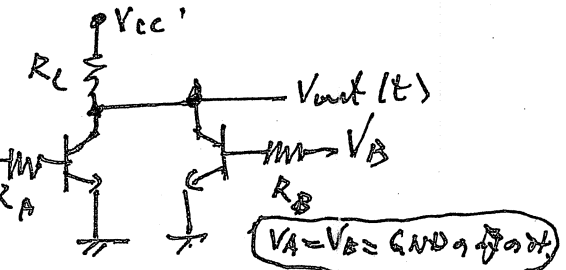 Vcc'
RL
Vout (t)
VB
RA
RB
VA=VB=GNDのときのみ